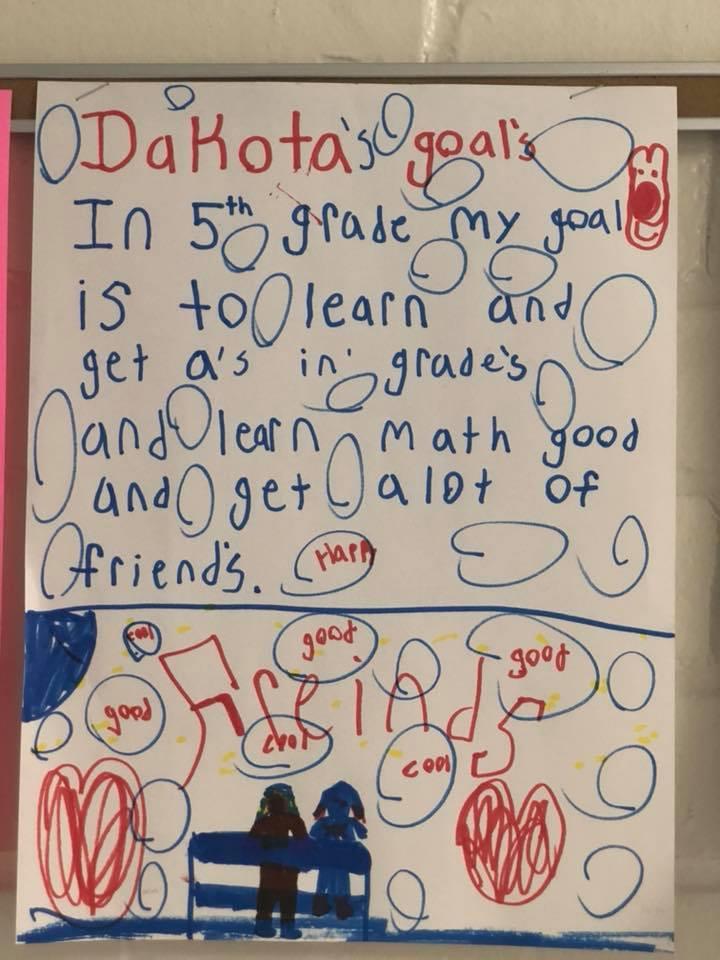 Dakota's goal's
In 5th grade my goal
is to learn and
get a's in grade's
and learn math good
and get a lot of
friend's.
Happy
cool
good
good
good
freinds
cool
cool